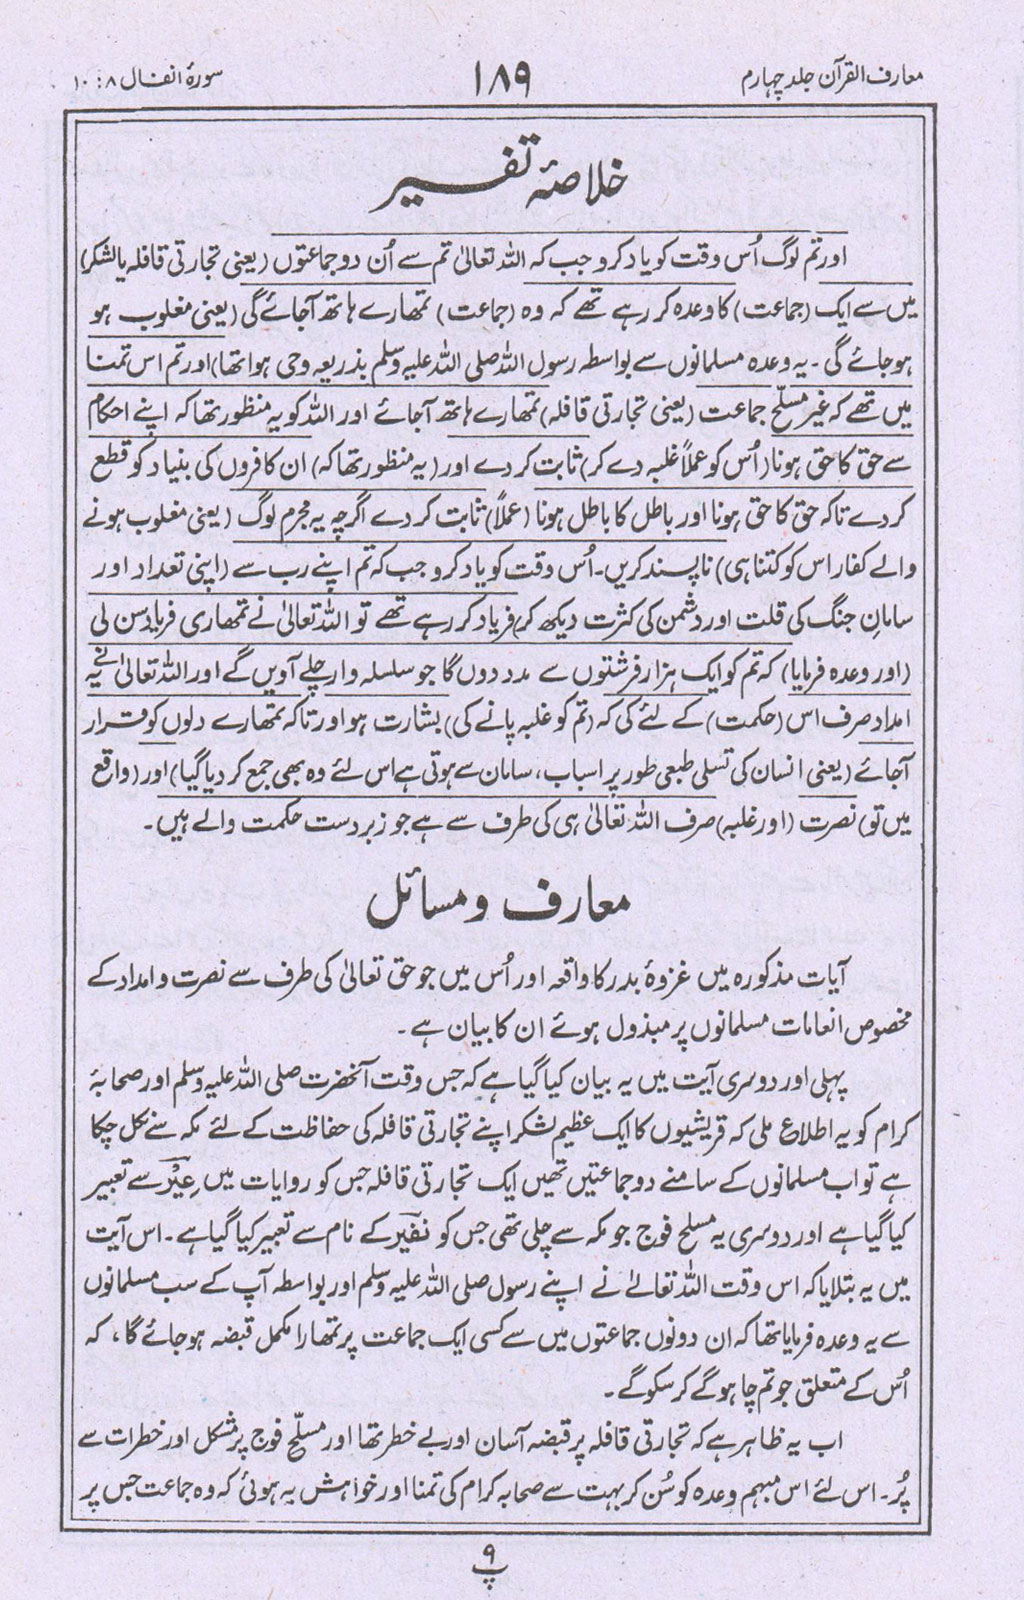 معارف القرآن جلد چہارم
۱۸۹
سورۂ انفال ۸ : ۱۰
خلاصۂ تفسیر
اور تم لوگ اُس وقت کو یاد کرو جب کہ اللہ تعالیٰ تم سے اُن دو جماعتوں (یعنی تجارتی قافلہ یا لشکر)
میں سے ایک (جماعت) کا وعدہ کر رہے تھے کہ وہ (جماعت) تمھارے ہاتھ آجائے گی (یعنی مغلوب ہو
ہوجائے گی ۔ یہ وعدہ مسلمانوں سے بواسطہ رسول اللہ صلی اللہ علیہ وسلم بذریعہ وحی ہوا تھا) اور تم اس تمنا
میں تھے کہ غیر مسلّح جماعت (یعنی تجارتی قافلہ) تمھارے ہاتھ آجائے اور اللہ کو یہ منظور تھا کہ اپنے احکام
سے حق کا حق ہونا (اُس کو عملاً غلبہ دے کر) ثابت کر دے اور (یہ منظور تھا کہ) ان کافروں کی بنیاد کو قطع
کر دے تاکہ حق کا حق ہونا اور باطل کا باطل ہونا (عملاً) ثابت کر دے اگرچہ یہ مجرم لوگ (یعنی مغلوب ہونے
والے کفار اس کو کتنا ہی) ناپسند کریں۔ اُس وقت کو یاد کرو جب کہ تم اپنے رب سے (اپنی تعداد اور
سامانِ جنگ کی قلت اور دشمن کی کثرت دیکھ کر) فریاد کر رہے تھے تو اللہ تعالیٰ نے تمھاری فریاد سن لی
(اور وعدہ فرمایا) کہ تم کو ایک ہزار فرشتوں سے مدد دوں گا جو سلسلہ وار چلے آویں گے اور اللہ تعالیٰ نے یہ
امداد صرف اس (حکمت) کے لئے کی کہ (تم کو غلبہ پانے کی) بشارت ہو اور تاکہ تمھارے دلوں کو قرار
آجائے (یعنی انسان کی تسلی طبعی طور پر اسباب، سامان سے ہوتی ہے اس لئے وہ بھی جمع کر دیا گیا) اور (واقع
میں تو) نصرت (اور غلبہ) صرف اللہ تعالیٰ ہی کی طرف سے ہے جو زبردست حکمت والے ہیں۔
معارف و مسائل
آیات مذکورہ میں غزوۂ بدر کا واقعہ اور اُس میں جو حق تعالیٰ کی طرف سے نصرت و امداد کے
مخصوص انعامات مسلمانوں پر مبذول ہوئے ان کا بیان ہے ۔
پہلی اور دوسری آیت میں یہ بیان کیا گیا ہے کہ جس وقت آنحضرت صلی اللہ علیہ وسلم اور صحابۂ
کرام کو یہ اطلاع ملی کہ قریشیوں کا ایک عظیم لشکر اپنے تجارتی قافلہ کی حفاظت کے لئے مکہ سے نکل چکا
ہے تو اب مسلمانوں کے سامنے دو جماعتیں تھیں ایک تجارتی قافلہ جس کو روایات میں عِیْر سے تعبیر
کیا گیا ہے اور دوسری یہ مسلح فوج جو مکہ سے چلی تھی جس کو نفیر کے نام سے تعبیر کیا گیا ہے ۔ اس آیت
میں یہ بتلایا کہ اس وقت اللہ تعالےٰ نے اپنے رسول صلی اللہ علیہ وسلم اور بواسطہ آپ کے سب مسلمانوں
سے یہ وعدہ فرمایا تھا کہ ان دونوں جماعتوں میں سے کسی ایک جماعت پر تمھارا مکمل قبضہ ہوجائے گا ، کہ
اُس کے متعلق جو تم چاہو گے کر سکو گے ۔
اب یہ ظاہر ہے کہ تجارتی قافلہ پر قبضہ آسان اور بے خطر تھا اور مسلّح فوج پر مشکل اور خطرات سے
پُر ۔ اس لئے اس مبہم وعدہ کو سُن کر بہت سے صحابہ کرام کی تمنا اور خواہش یہ ہوئی کہ وہ جماعت جس پر
۹
پ